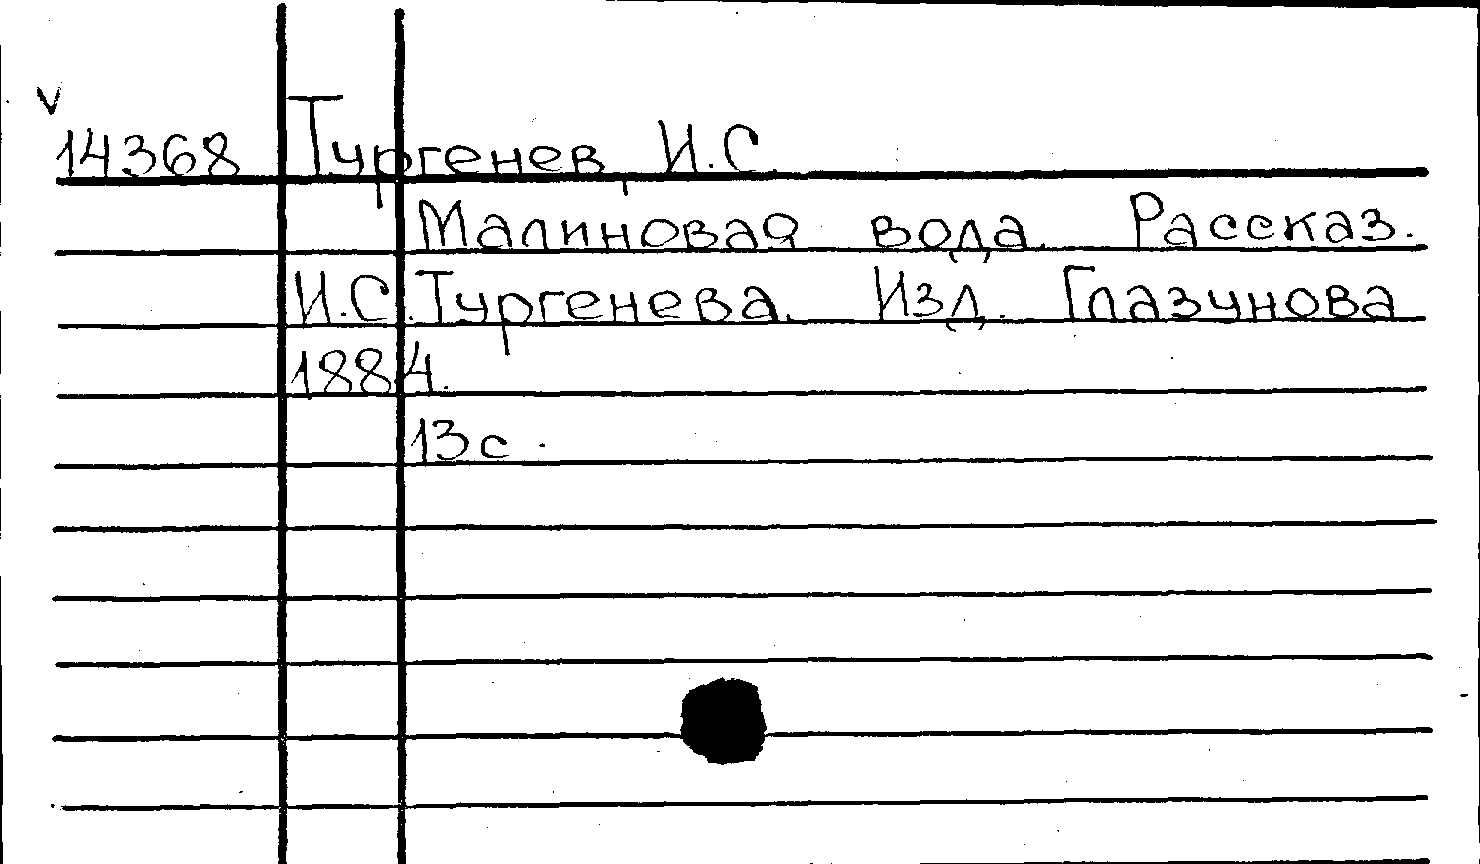 v
14368 Тургенев, И.С.
Малиновая вода. Рассказ.
И.С. Тургенева. Изд. Глазунова
1884.
13 с.